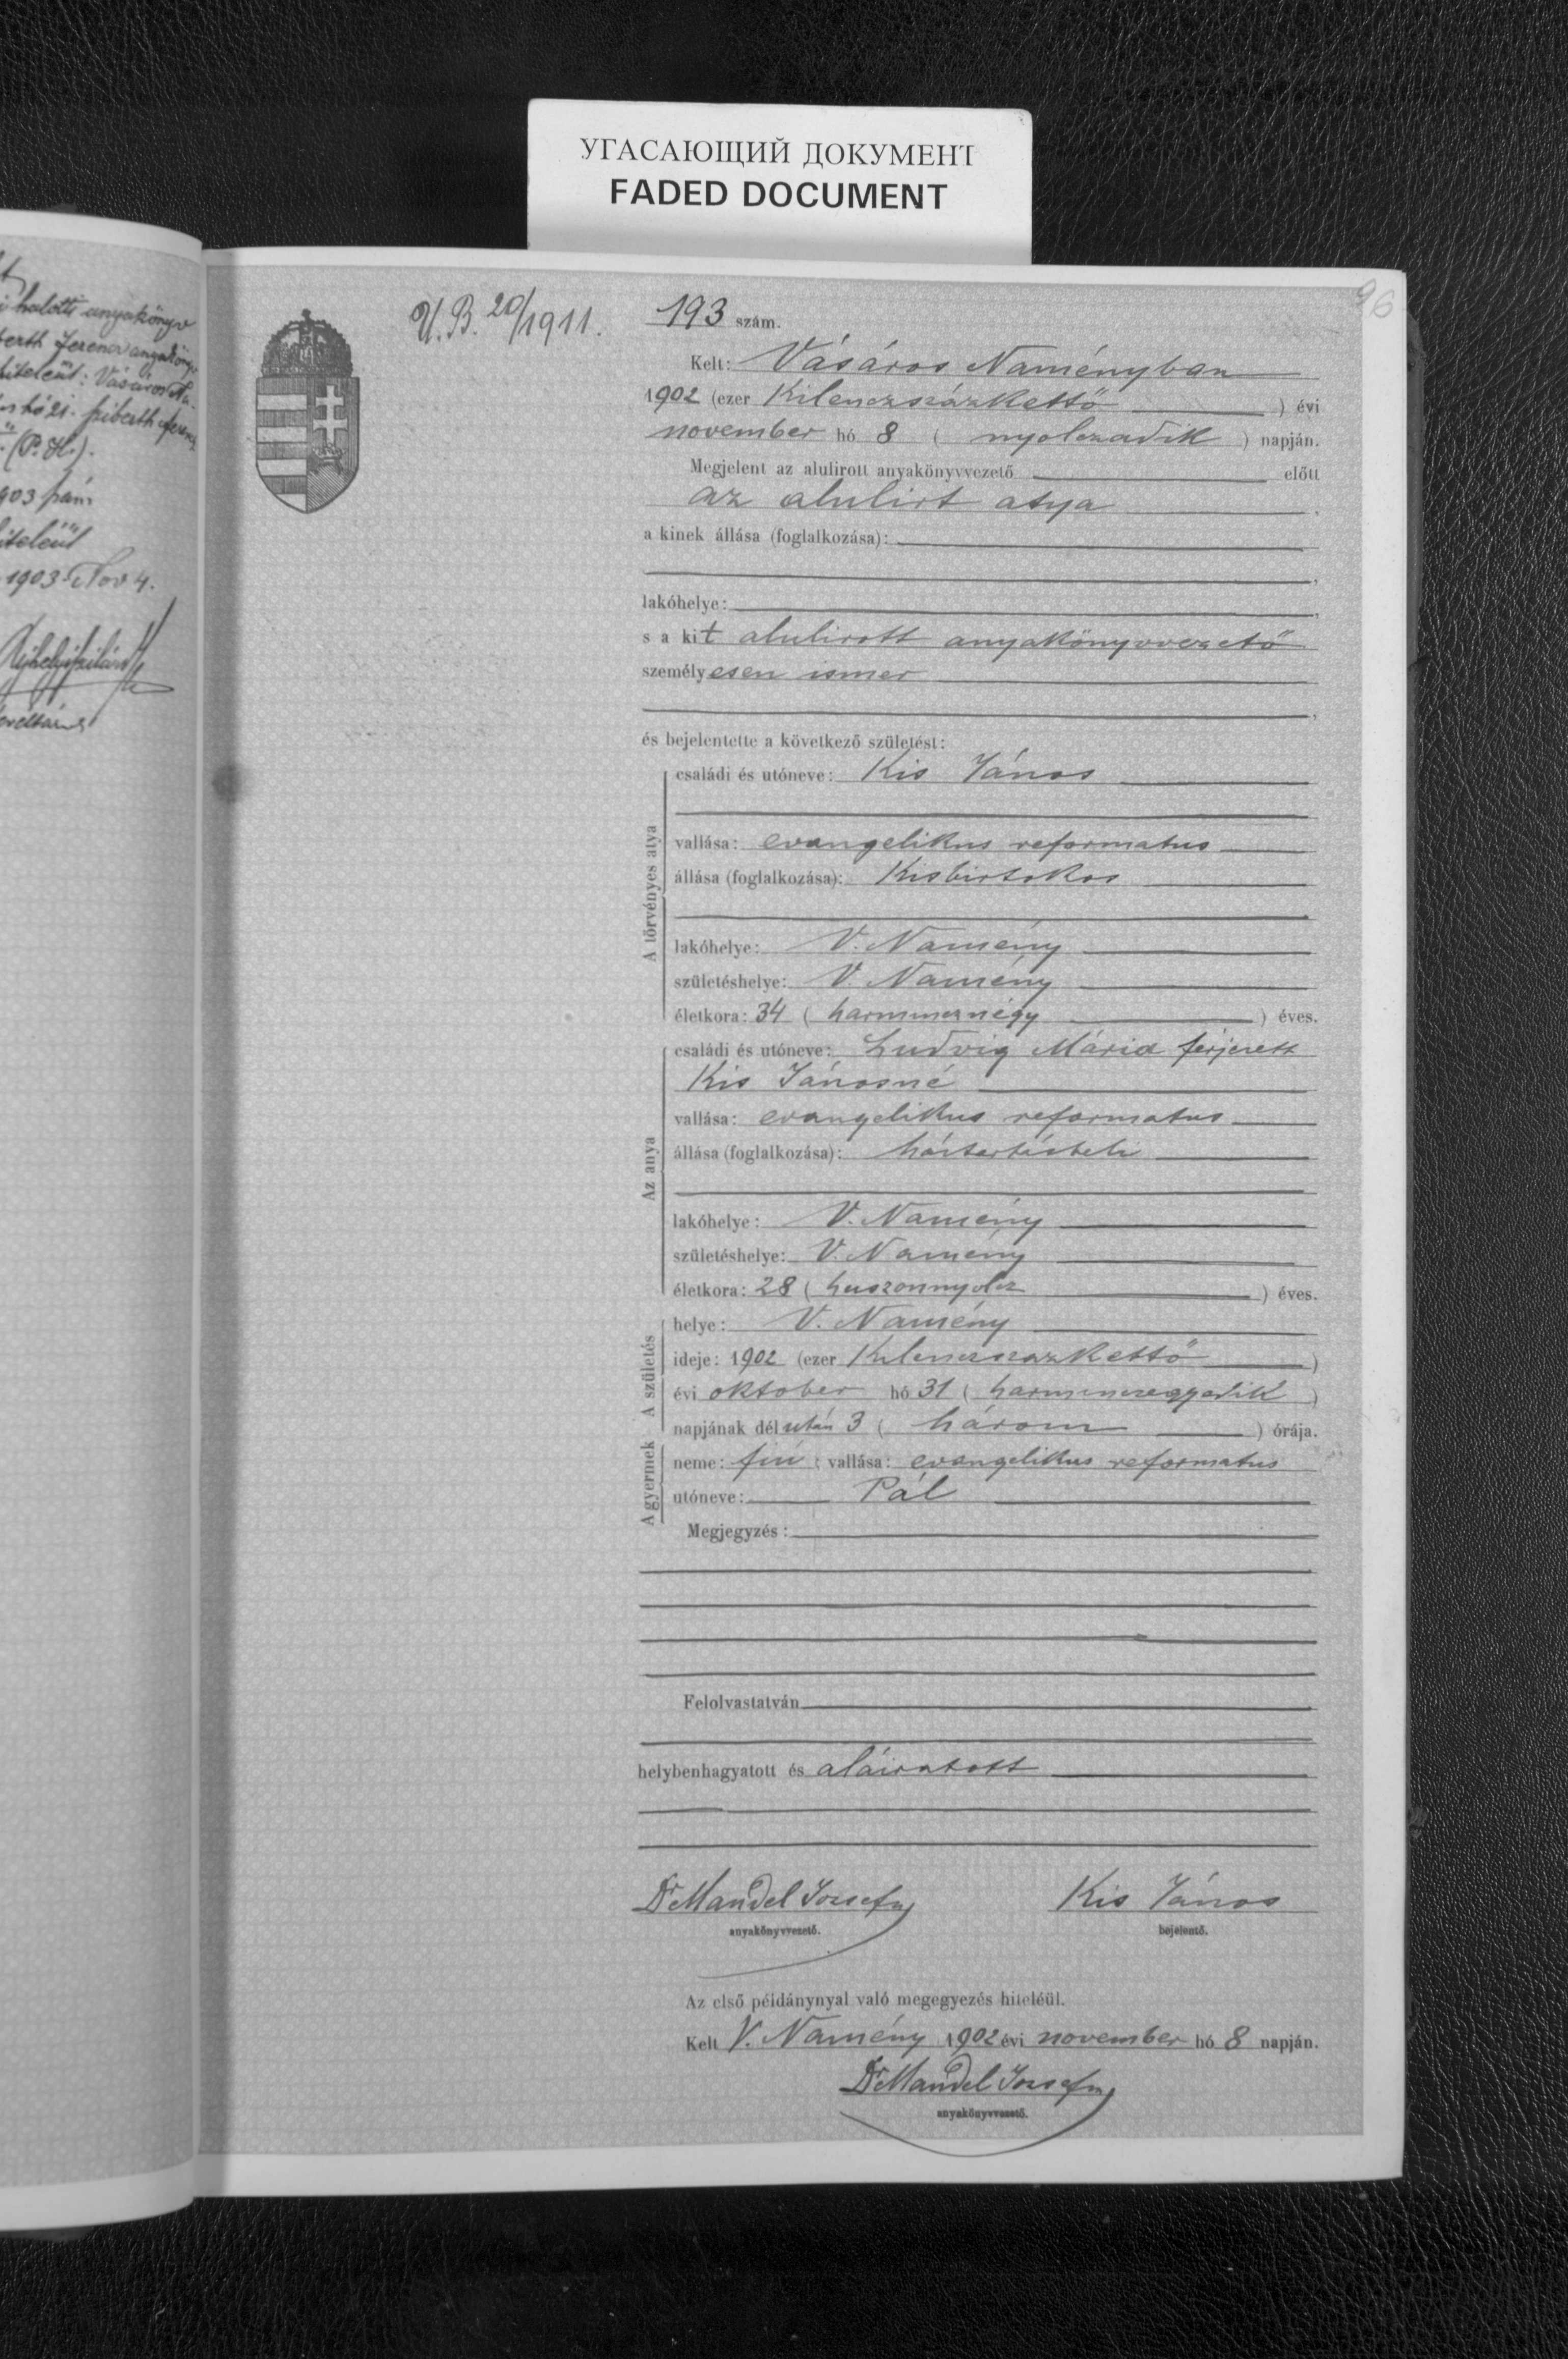 УГАСАЮЩИЙ ДОКУМЕНТ
FADED DOCUMENT
i halotti anyakönyv
Ferencz
1903
1903 Nov 4.
96
U.B. 20/1911.
193 szám.
Kelt: Vásáros Naményban
1902 (ezer Kilenczszázkettő ) évi
november hó 8 ( nyolczadik ) napján.
Megjelent az alulirott anyakönyvvezető előtt
az alulirt atya ,
a kinek állása (foglalkozása):
,
lakóhelye: ,
s a kit alulirott anyakönyvvezető
személyesen ismer
,
és bejelentette a következő születést:
A törvényes atya
családi és utóneve: Kis János
vallása: evangelikus reformatus
állása (foglalkozása): Kisbirtokos
lakóhelye: V. Namény
születéshelye: V. Namény
életkora: 34 ( harmincznégy ) éves.
Az anya
családi és utóneve: Ludvig Mária férjezett
Kis Jánosné
vallása: evangelikus reformatus
állása (foglalkozása): háztartásbeli
lakóhelye: V. Namény
születéshelye: V. Namény
életkora: 28 ( huszonnyolcz ) éves.
A születés
helye: V. Namény
ideje: 1902 (ezer Kilenczszázkettő )
évi oktober hó 31 ( harminczegyedik )
napjának délután 3 ( három ) órája.
A gyermek
neme: fiú ; vallása: evangelikus reformatus
utóneve: Pál
Megjegyzés:
Felolvastatván
helybenhagyatott és aláiratott
Dr Mandel József Kis János
anyakönyvvezető. bejelentő.
Az első példánynyal való megegyezés hiteléül.
Kelt V. Namény 1902 évi november hó 8 napján.
Dr Mandel József
anyakönyvvezető.